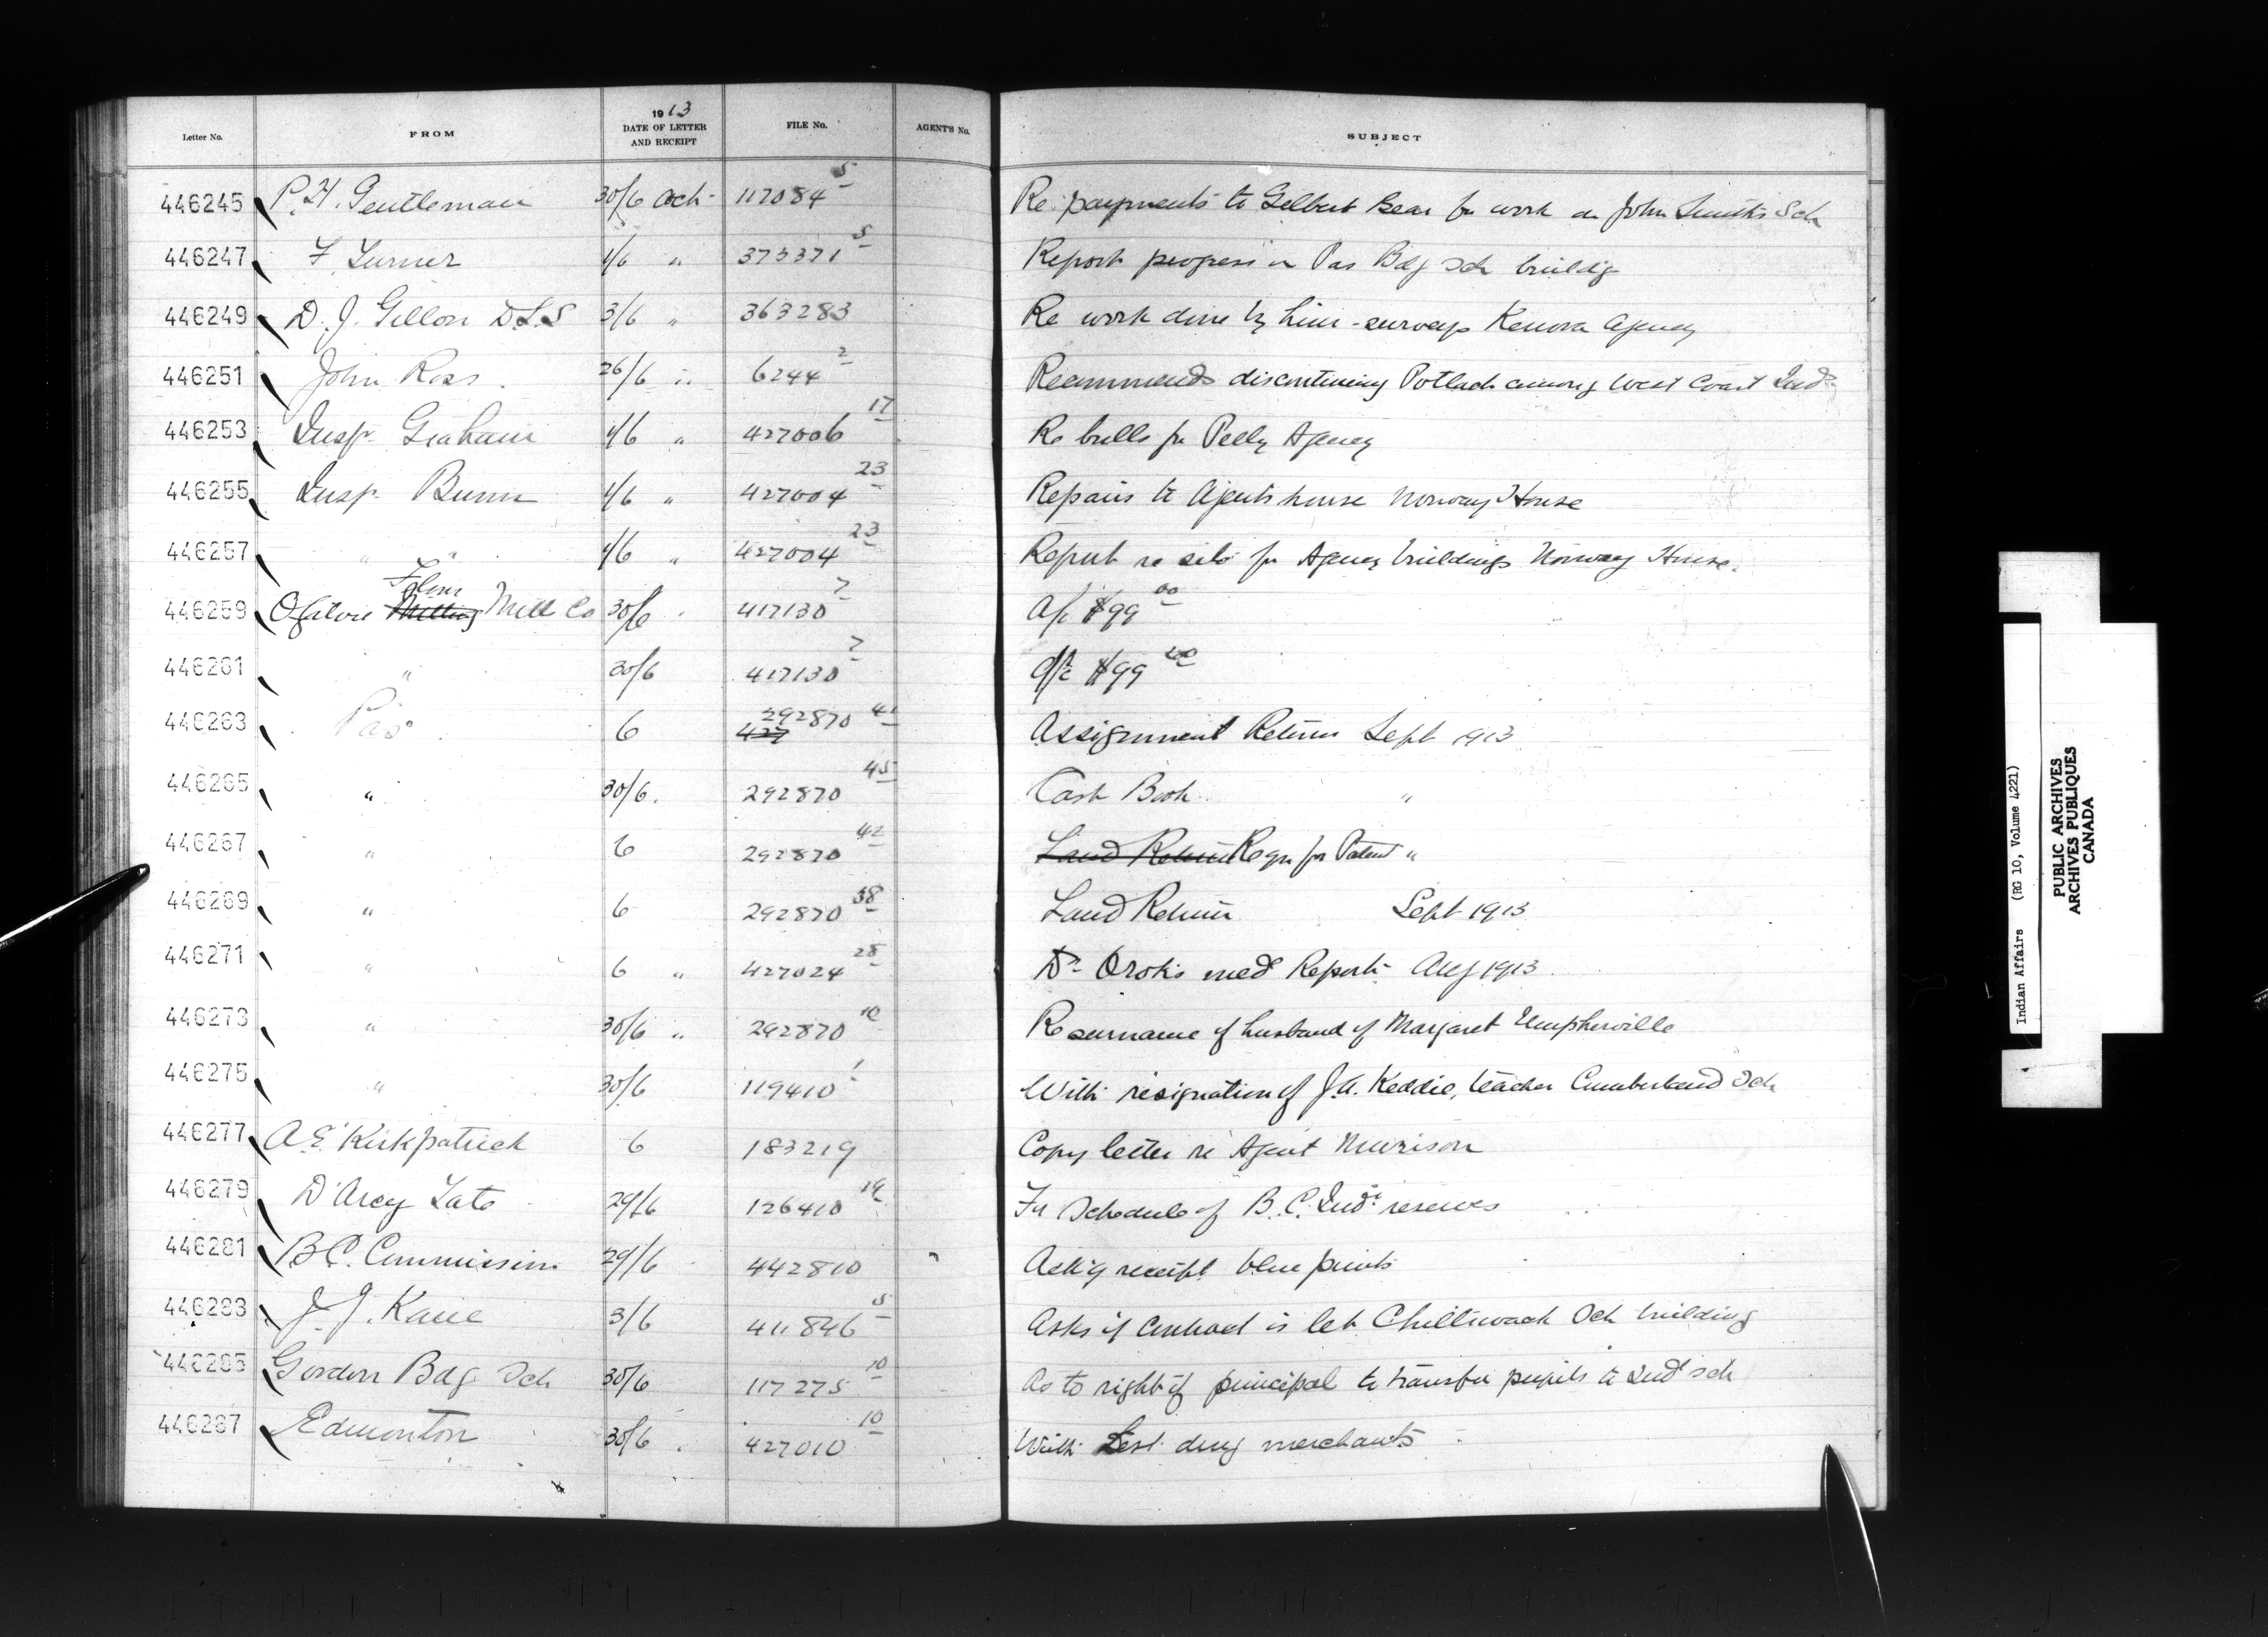 Letter No. FROM 1913 DATE OF LETTER AND RECEIPT FILE No. AGENT'S No. SUBJECT
446245 P. H. Gentleman 30/6 Oct 117084 5 Re payments to Gilbert Bear for work on John Smith's Sch
446247 F. Turner 1/6 " 373371 5 Report progress on Pas Bdg Sch buildg
446249 D. J. Gillon D.L.S 3/6 " 363283 Re work done by him - surveys Kenora Agency
446251 John Ross. 26/6 " 6244 2 Recommends discontinuing Potlach among West Coast Inds
446253 Insp. Graham 1/6 " 427006 17 Re bulls for Pelly Agency
446255 Insp. Bunn 1/6 " 427004 23 Repairs to Agents house Norway House
446257 " " 1/6 " 427004 23 Report re silo for Agency buildings Norway House.
446259 Ogilvie Milling Flour Mill Co 30/6 " 417130 7 A/c $99 00
446261 " 30/6 417130 7 A/c $99 00
446263 Pas 6 427 292870 41 Assignment Return Sept 1913
446265 " 30/6. 292870 45 Cash Book "
446267 " 6 292870 42 Land Return Reqn for Patent "
446269 " 6 292870 38 Land Return Sept 1913
446271 " 6 " 427024 28 Dr Orok's med Report Aug 1913
446273 " 30/6 " 292870 10 Re surname of husband of Margaret Umpherville
446275 " 30/6 119410 1 With resignation of J. A. Keddie, teacher Cumberland Sch
446277 A. E. Kirkpatrick 6 183219 Copy letter re Agent Murison
446279 D'Arcy Tate 29/6 126410 19 For Schedule of B.C. Ind. reserves
446281 B.C. Commission 29/6 442810 Ackg receipt blue prints
446283 J. J. Kane 3/6 411846 5 Asks if contract is let Chilliwack Sch building
446285 Gordon Bdg Sch 30/6 117275 10 As to right of principal to transfer pupils to Indl sch
446287 Edmonton 30/6 " 427010 10 With List drug merchants
Indian Affairs (RG 10, Volume 4221)
PUBLIC ARCHIVES
ARCHIVES PUBLIQUES
CANADA